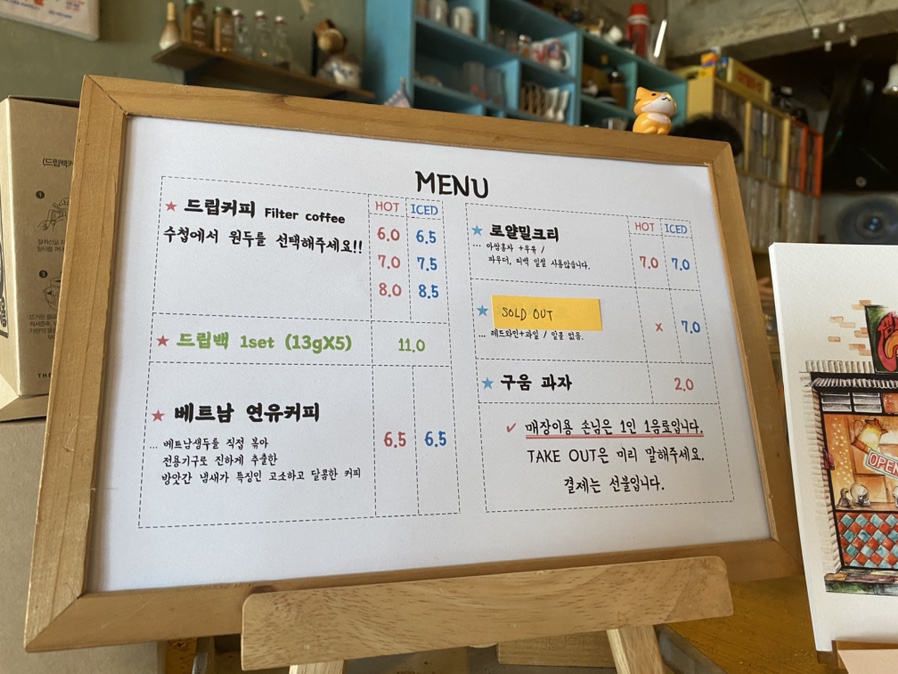 MENU
★ 드립커피 Filter coffee
HOT ICED
수첩에서 원두를 선택해주세요!!
6.0 6.5
7.0 7.5
8.0 8.5
★ 드립백 1set (13gX5) 11.0
★ 베트남 연유커피
... 베트남생두를 직접 볶아
전용기구로 진하게 추출한
방앗간 냄새가 특징인 고소하고 달콤한 커피
6.5 6.5
HOT ICED
★ 로얄밀크티
... 아쌈홍차 +우유 /
파우더, 티백 일절 사용않습니다.
7.0 7.0
★ SOLD OUT
... 레드와인+과일 / 알콜 없음.
x 7.0
★ 구움 과자 2.0
✓ 매장이용 손님은 1인 1음료입니다.
TAKE OUT은 미리 말해주세요.
결제는 선불입니다.
OPEN